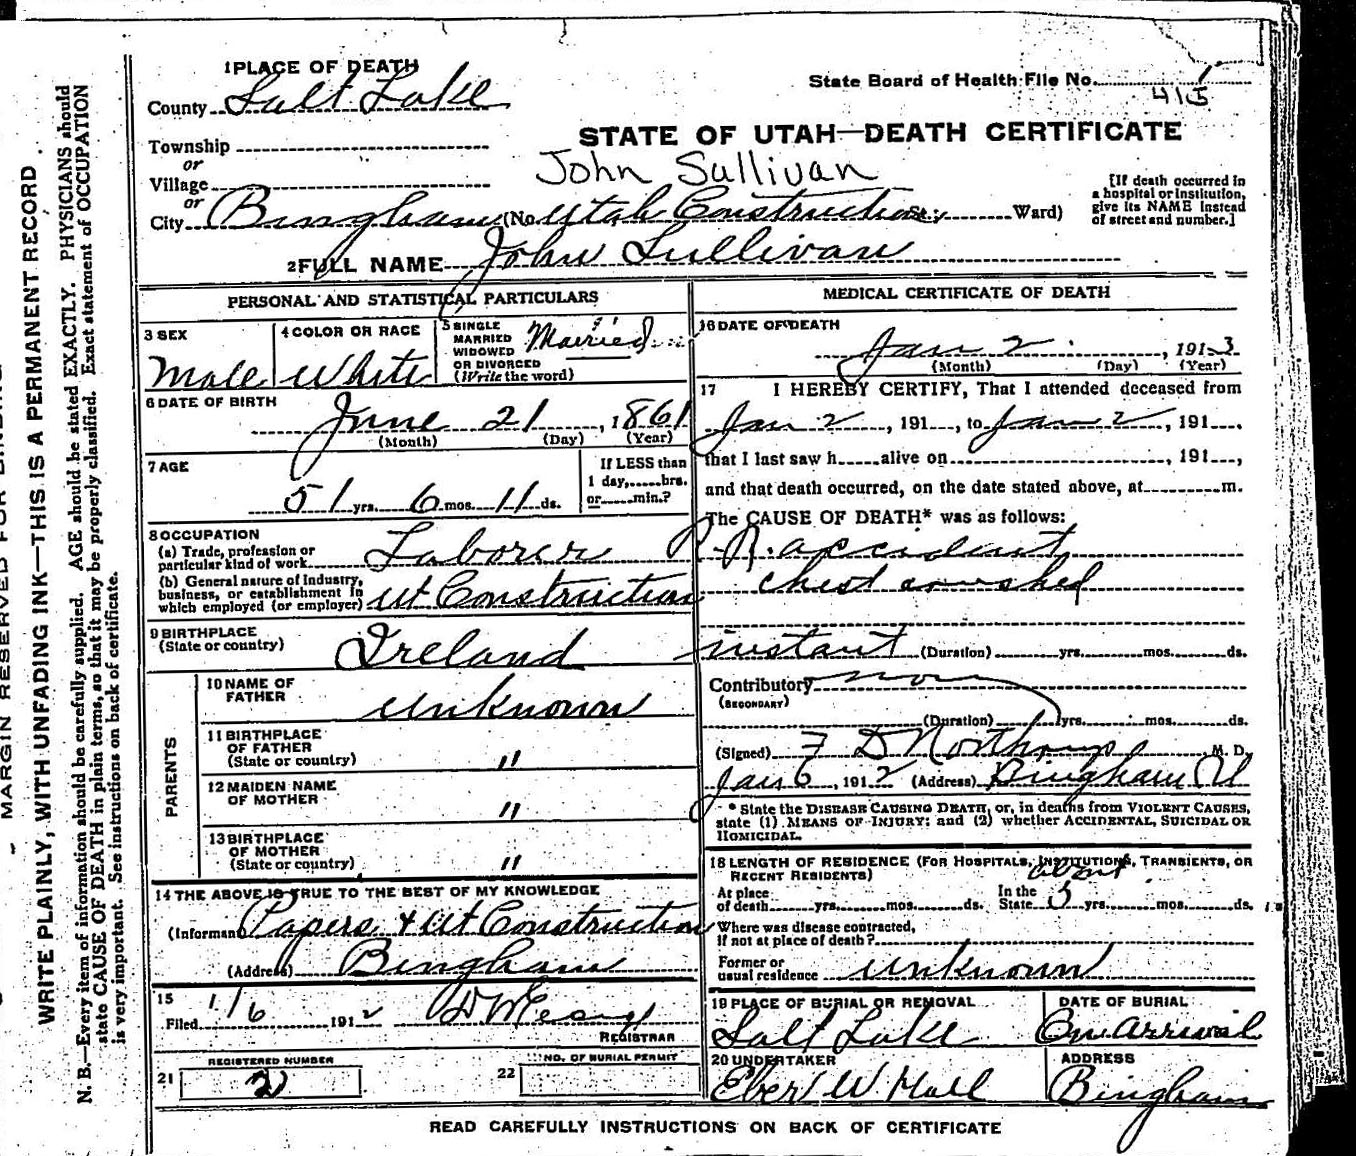 1 PLACE OF DEATH
County Salt Lake
Township
or
Village
or
City Bingham (No. Utah Construction St.; Ward)
State Board of Health File No. 415
STATE OF UTAH—DEATH CERTIFICATE
John Sullivan
[If death occurred in a hospital or institution, give its NAME instead of street and number.]
2 FULL NAME John Sullivan
PERSONAL AND STATISTICAL PARTICULARS
3 SEX
Male
4 COLOR OR RACE
White
5 SINGLE
MARRIED
WIDOWED
OR DIVORCED
(Write the word)
Married
6 DATE OF BIRTH
June 21, 1861
(Month) (Day) (Year)
7 AGE
51 yrs. 6 mos. 11 ds.
If LESS than
1 day,.....hrs.
or.....min.?
8 OCCUPATION
(a) Trade, profession or
particular kind of work Laborer
(b) General nature of Industry,
business, or establishment in
which employed (or employer) Ut Construction
9 BIRTHPLACE
(State or country) Ireland
PARENTS
10 NAME OF
FATHER unknown
11 BIRTHPLACE
OF FATHER
(State or country) "
12 MAIDEN NAME
OF MOTHER "
13 BIRTHPLACE
OF MOTHER
(State or country) "
14 THE ABOVE IS TRUE TO THE BEST OF MY KNOWLEDGE
(Informant Papers & Ut Construction
(Address) Bingham
15
Filed 1/6 1912
REGISTRAR
REGISTERED NUMBER
21 2
NO. OF BURIAL PERMIT
22
MEDICAL CERTIFICATE OF DEATH
16 DATE OF DEATH
Jan 2, 1913
(Month) (Day) (Year)
17 I HEREBY CERTIFY, That I attended deceased from
Jan 2, 191..., to Jan 2, 191....
that I last saw h.....alive on, 191...,
and that death occurred, on the date stated above, at m.
The CAUSE OF DEATH* was as follows:
R.R. accident
chest crushed
instant (Duration) yrs. mos. ds.
Contributory non
(SECONDARY)
(Duration) yrs. mos. ds.
(Signed) F D Northrup M. D.
Jan 6, 1912 (Address) Bingham Ut
* State the DISEASE CAUSING DEATH, or, in deaths from VIOLENT CAUSES,
state (1) MEANS OF INJURY; and (2) whether ACCIDENTAL, SUICIDAL OR
HOMICIDAL.
18 LENGTH OF RESIDENCE (FOR HOSPITALS, INSTITUTIONS, TRANSIENTS, OR
RECENT RESIDENTS)
At place
of death yrs. mos. ds.
about
In the
State 5 yrs. mos. ds.
Where was disease contracted,
If not at place of death?
Former or
usual residence unknown
19 PLACE OF BURIAL OR REMOVAL
Salt Lake
DATE OF BURIAL
On Arrival
20 UNDERTAKER
Eber W Hall
ADDRESS
Bingham
READ CAREFULLY INSTRUCTIONS ON BACK OF CERTIFICATE
MARGIN RESERVED FOR BINDING
WRITE PLAINLY, WITH UNFADING INK—THIS IS A PERMANENT RECORD.
N. B.—Every item of information should be carefully supplied. AGE should be stated EXACTLY. PHYSICIANS should
state CAUSE OF DEATH in plain terms, so that it may be properly classified. Exact statement of OCCUPATION
is very important. See instructions on back of certificate.